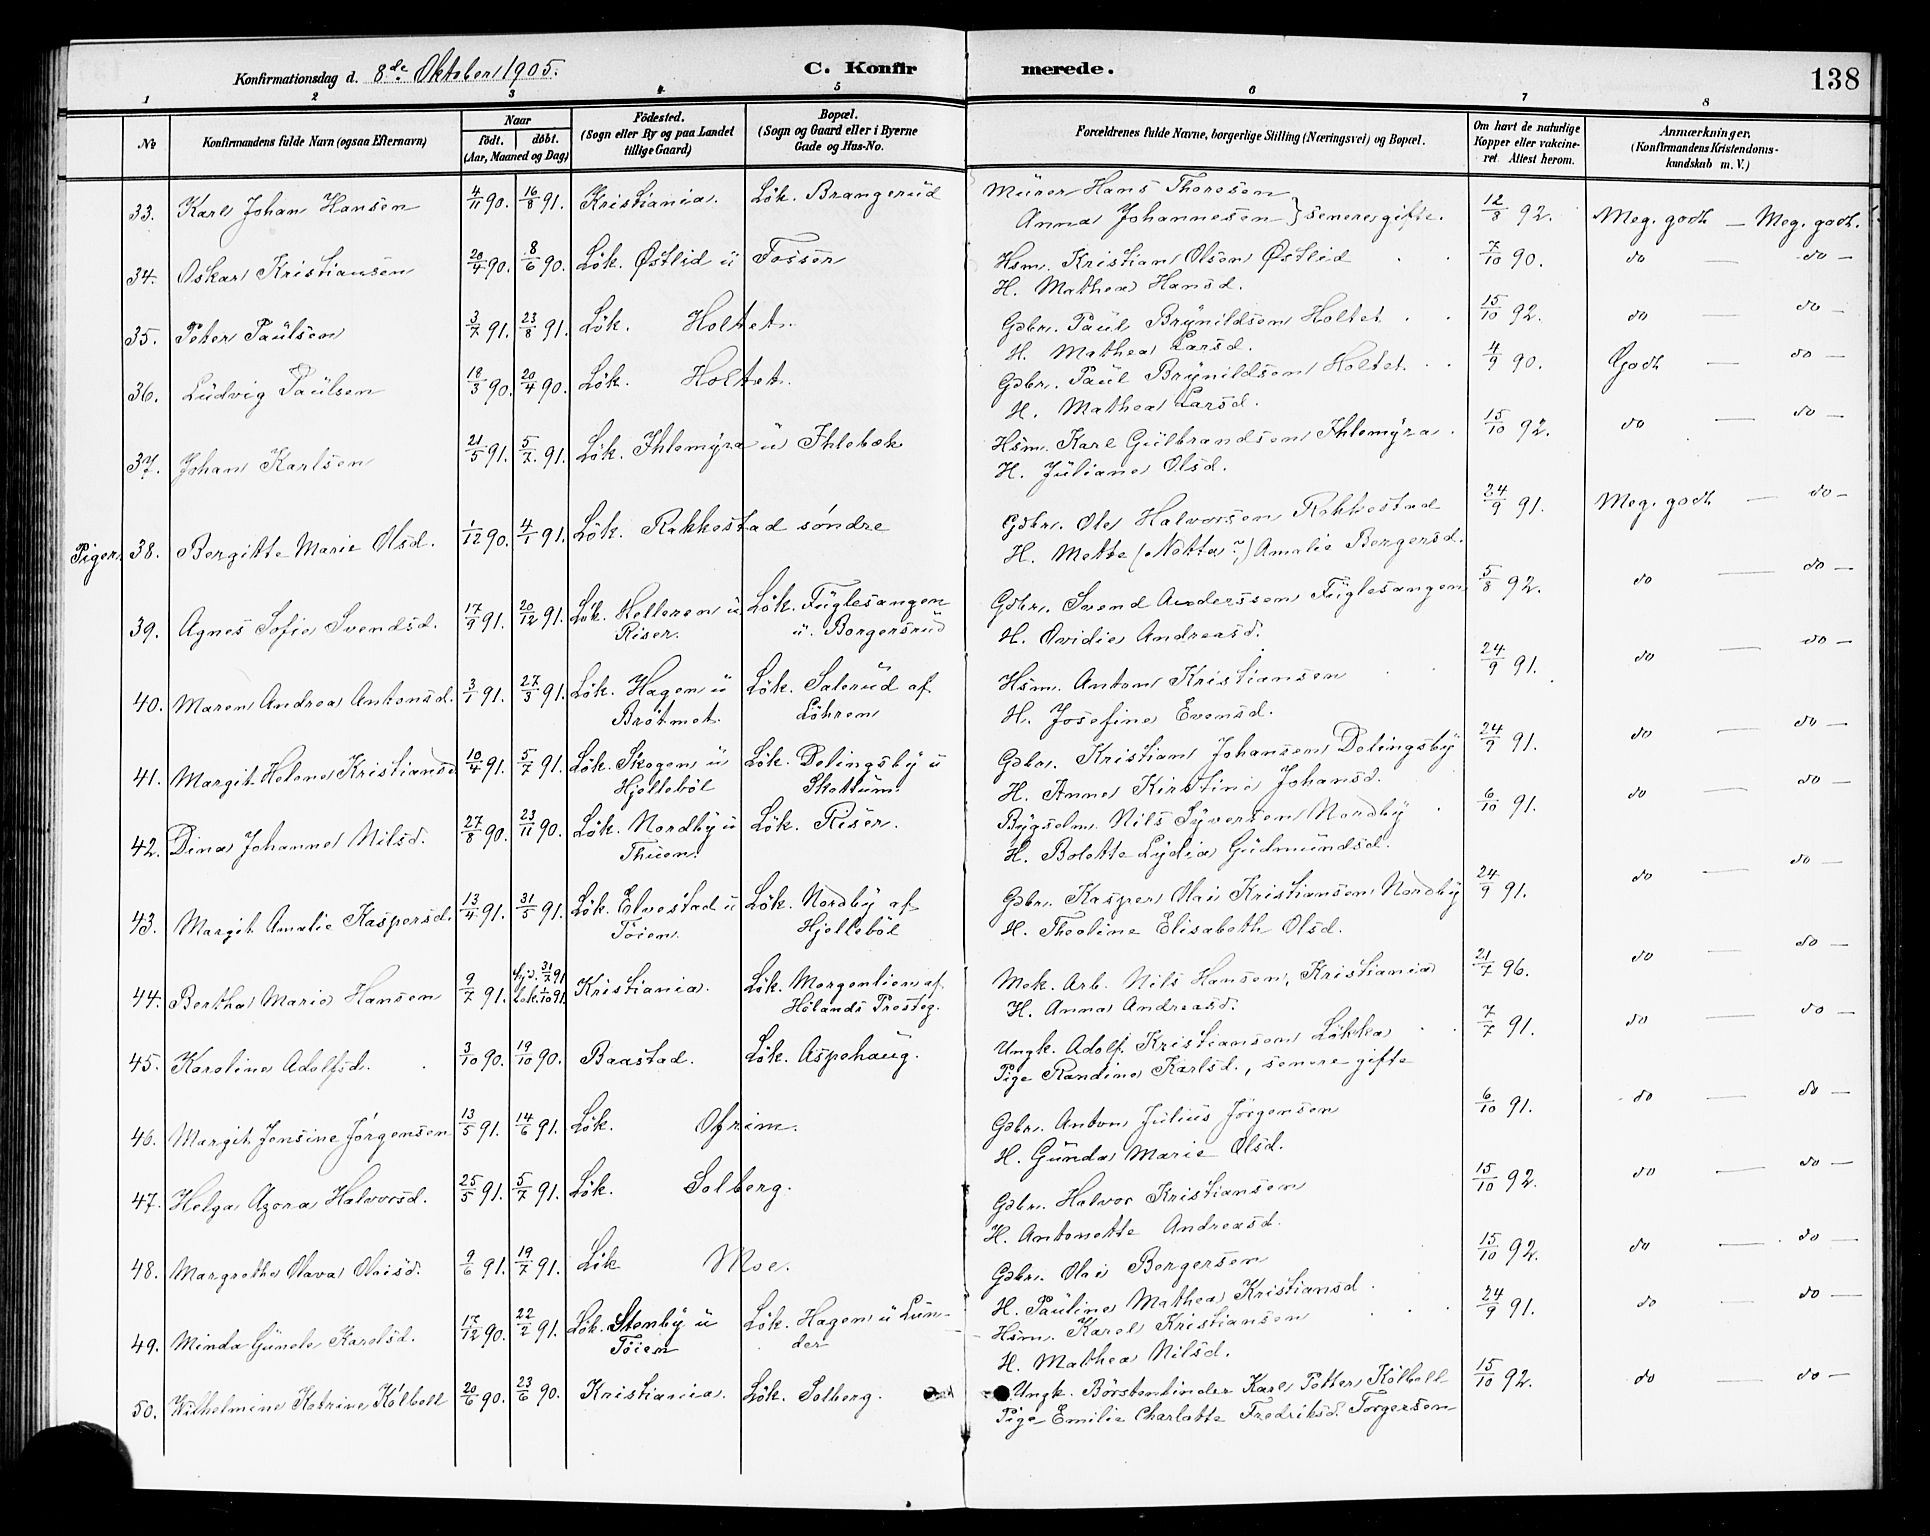 Konfirmationsdag d. 8de Oktober 1905.
C. Konfir merede.
138
1 2 3 4 5 6 7 8
No
Konfirmandens fulde Navn (ogsaa Efternavn)
Naar
födt. döbt.
(Aar, Maaned og Dag)
Födested.
(Sogn eller By og paa Landet
tillige Gaard)
Bopæl.
(Sogn og Gaard eller i Byerne
Gade og Hus-No.
Forældrenes fulde Navne, borgerlige Stilling (Næringsvei) og Bopæl.
Om havt de naturlige
Kopper eller vakcine-
ret. Attest herom.
Anmærkninger.
(Konfirmandens Kristendoms-
kundskab m. V.)
33. Karl Johan Hansen 4/11 90. 16/8 91. Kristiania. Lök. Brangerud Murer Hans Thoresen
Anna Johannesen } senere gifte. 12/8 92. Meg. godt — Meg. godt.
34. Oskar Kristiansen 20/4 90. 8/6 90. Lök. Østlid u Fosser Hsm. Kristian Olsen Østlid 7/10 90. do — do —
H. Mathea Hansd.
35. Peter Paulsen 3/7 91. 23/8 91. Lök. Holtet. Gdbr. Paul Brynildsen Holtet 15/10 92. do — do —
H. Mathea Larsd.
36. Ludvig Paulsen 18/3 90. 20/4 90. Lök. Holtet. Gdbr. Paul Brynildsen Holtet 4/9 90. Godt — do —
H. Mathea Larsd.
37. Johan Karlsen 21/5 91. 5/7 91. Lök. Ihlemyra u Ihlebæk Hsm. Karl Gulbrandsen Ihlemyra 15/10 92. do — do —
H. Juliane Olsd.
Piger. 38. Bergitte Marie Olsd. 1/12 90. 4/1 91. Lök. Rakkestad söndre Gdbr. Ole Halvorsen Rakkestad 24/9 91. Meg. godt — do —
H. Mette (Netta?) Amalie Bergersd.
39. Agnes Sofie Svendsd. 17/9 91. 20/12 91. Lök. Helleren u Lök. Fuglesangen Gdbr. Svend Anderssen Fuglesangen 5/8 92. do — do —
Riser. u. Borgersrud H. Ovidie Andreasd.
40. Maren Andrea Antonsd. 3/1 91. 27/3 91. Lök. Hagen u Lök. Salerud af Hsm. Anton Kristiansen 24/9 91. do — do —
Brötmet. Löhren H. Josefine Evensd.
41. Margit Helene Kristiansd. 10/4 91. 5/7 91. Lök. Skogen u Lök. Delingsby u Gdbr. Kristian Johansen Delingsby 24/9 91. do — do —
Hjelleböl Skattum. H. Anne Kirstine Johansd.
42. Dina Johanne Nilsd. 27/8 90. 23/11 90. Lök. Nordby u Lök. Riser. Bygselm. Nils Syversen Nordby 6/10 91. do — do —
Thuen. H. Bolette Lydia Gudmundsd.
43. Margit Amalie Kaspersd. 13/4 91. 31/5 91. Lök. Elvestad u Lök. Nordby af Gdbr. Kasper Olai Kristiansen Nordby 24/9 91. do — do —
Töien. Hjelleböl H. Theoline Elisabeth Olsd.
44. Bertha Marie Hansen 9/7 91. 31/7 91 Lök. 1/10 91. Kristiania. Lök. Morgenlien af Mek. Arb. Nils Hansen, Kristiania 21/7 96. do — do —
Hölands Presteg. H. Anna Andreasd.
45. Karoline Adolfsd. 3/10 90. 19/10 90. Baastad. Lök. Aspehaug. Ungk. Adolf Kristiansen Lökka 7/7 91. do — do —
Pige Randine Karlsd., senere gifte
46. Margit Jensine Jörgensen 13/5 91. 14/6 91. Lök. Ofrim. Gdbr. Anton Julius Jörgensen 6/10 91. do — do —
H. Gunda Marie Olsd.
47. Helga Azora Halvorsd. 25/5 91. 5/7 91. Lök. Solberg. Gdbr. Halvor Kristiansen 15/10 92. do — do —
H. Antonette Andreasd.
48. Margrethe Olava Olaisd. 9/6 91. 19/7 91. Lök Moe. Gdbr. Olai Bergersen 15/10 92. do — do —
H. Pauline Mathea Kristiansd.
49. Minda Gunele Karelsd. 17/12 90. 22/2 91. Lök. Stenby u Lök. Hagen u Lun- Hsm. Karel Kristiansen 24/9 91. do — do —
Töien der H. Mathea Nilsd.
50. Wilhelmine Katrine Kölbell 20/6 90. 23/6 90. Kristiania. Lök. Solberg. Ungk. Börstenbinder Karl Petter Kölbell 15/10 92. do — do —
Pige Emilie Charlotte Fredriksd. Torgersen